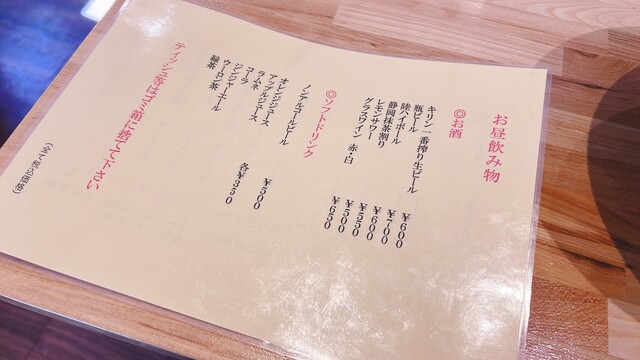 お昼飲み物
◎お酒
キリン一番搾り生ビール ￥600
瓶ビール ￥700
陸ハイボール ￥600
静岡抹茶割り ￥550
レモンサワー ￥500
グラスワイン 赤・白 ￥650
◎ソフトドリンク
ノンアルコールビール ￥500
オレンジジュース
アップルジュース
ラムネ
コーラ
ジンジャーエール
ウーロン茶
緑茶
各￥350
ティッシュ等はゴミ箱に捨てて下さい
(全て税込価格)